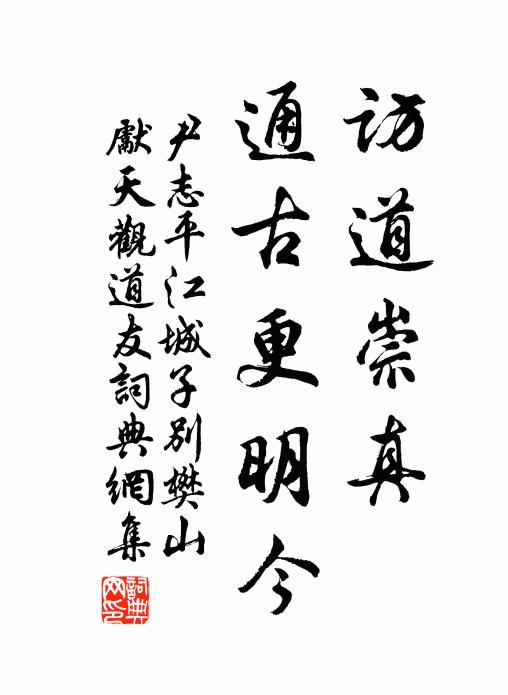 訪道崇真
通古更明今
尹志平江城子別樊山
獻天觀道友詞典網集
詞典網印